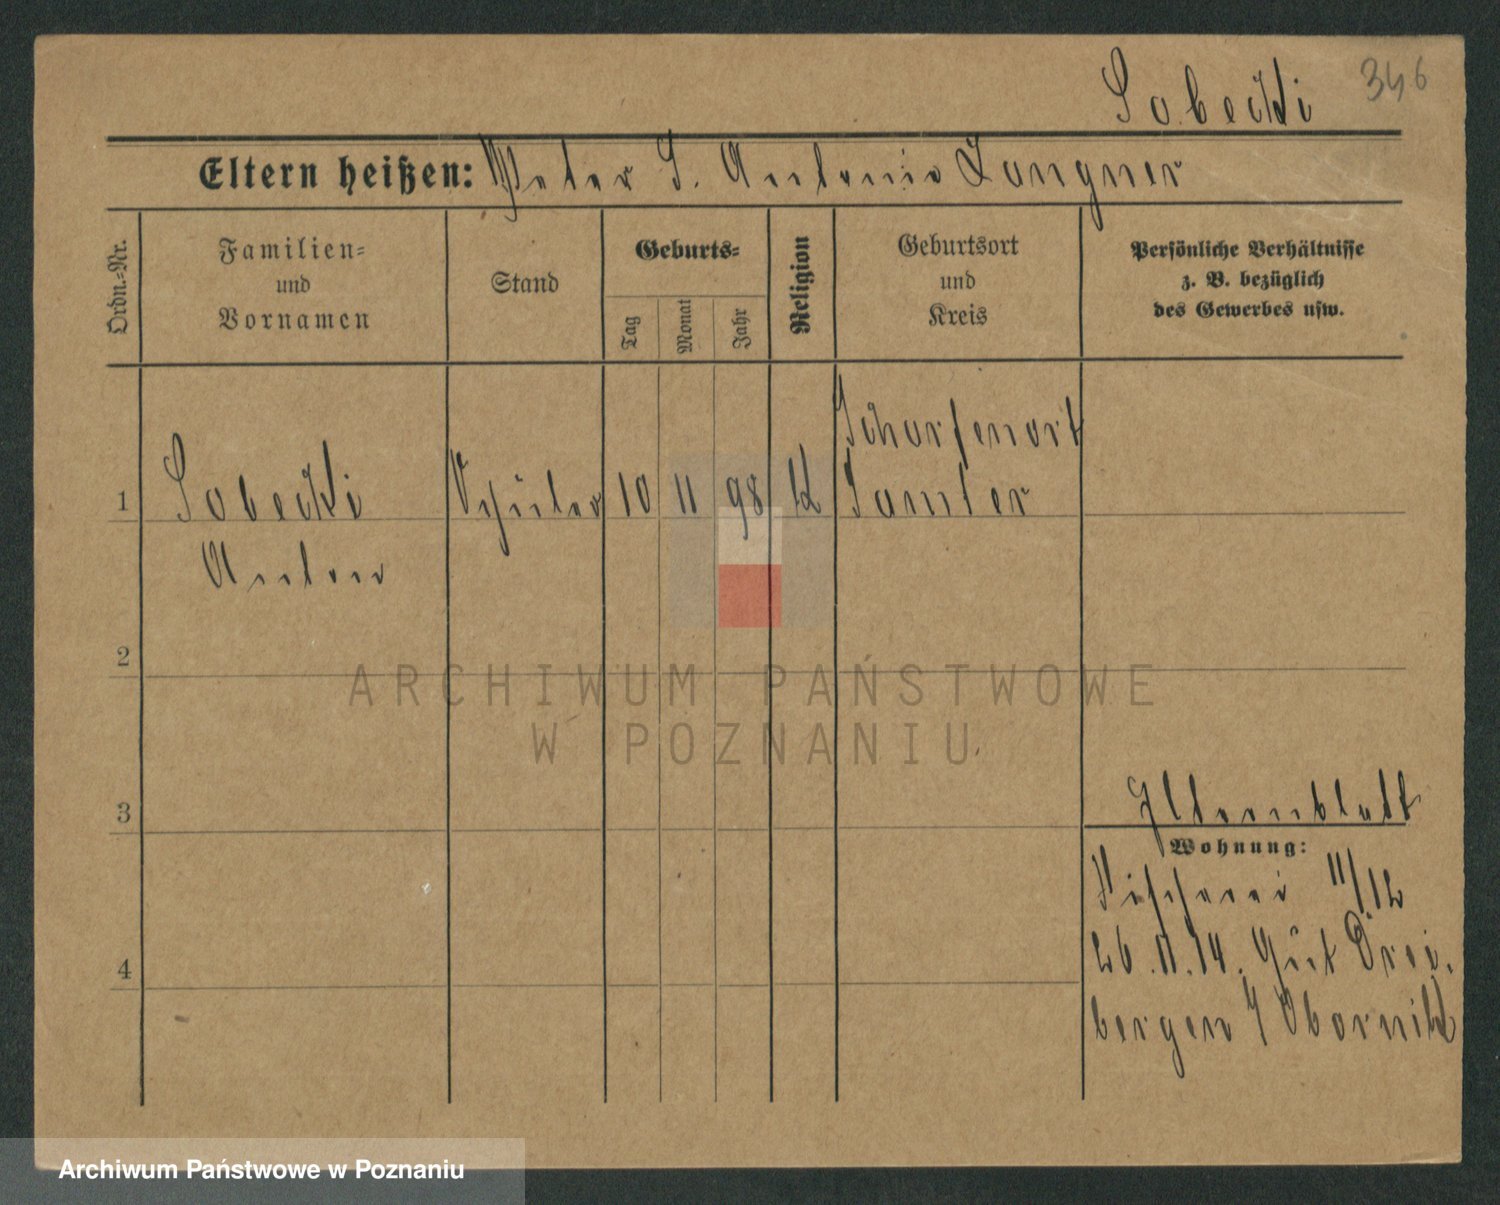 Sobecki 346
Eltern heißen: Peter S. Antonie Langner
Ordn.=Nr.
Familien=
und
Vornamen
Stand
Geburts=
Tag
Monat
Jahr
Religion
Geburtsort
und
Kreis
Persönliche Verhältnisse
z. B. bezüglich
des Gewerbes usw.
Scharfenort
1 Sobecki Schüler 10 11 98 k Samter
Anton
2
ARCHIWUM PAŃSTWOWE
W POZNANIU
3 Elternblatt
Wohnung:
Fischerei 11/12
26.11.14. Gut Drei-
4
bergen / Obornik
Archiwum Państwowe w Poznaniu